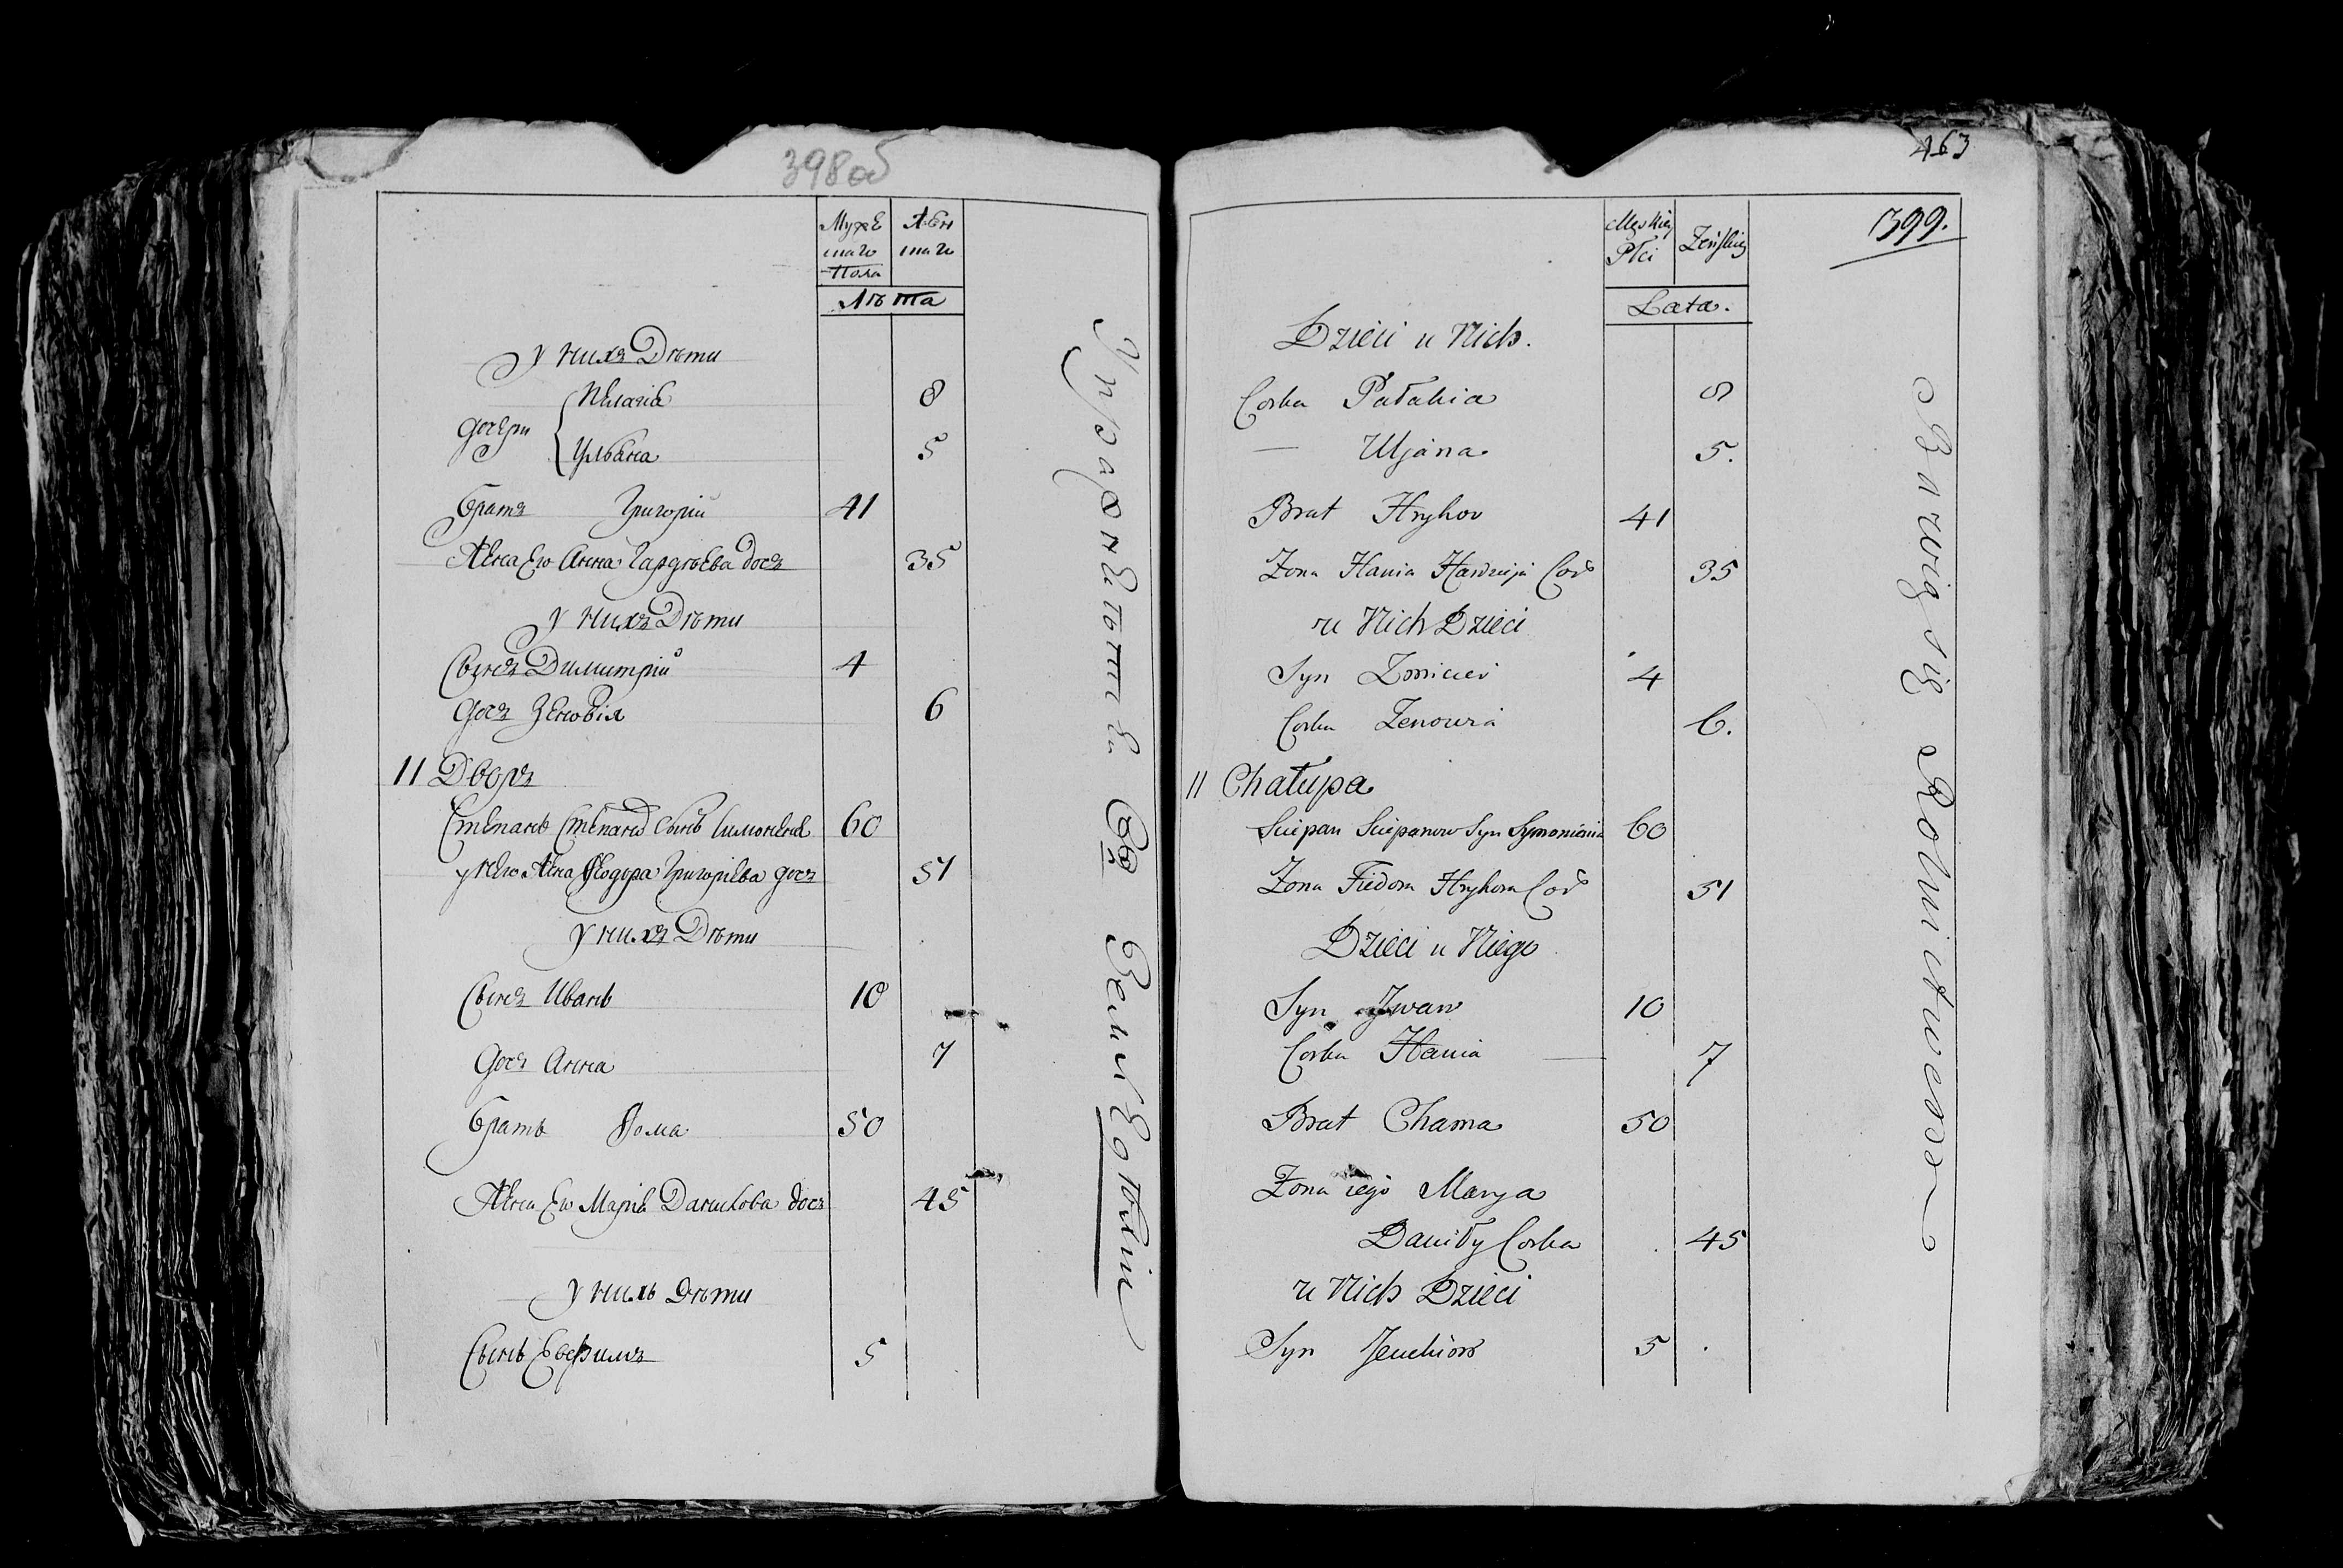 398 об
Мужескаго Пола
Женскаго
Лѣта
у нихъ Дѣти
дочери
Пелагіа 8
Ульана 5
братъ Григорій 41
Жена Ево Анна Гардѣева дочъ 35
у нихъ Дѣти
Сынъ Димитрій 4
дочъ Зеновія 6
11 Дворъ
Степанъ Степановъ сынъ 60
у нево Жена Ѳеодора Григорьева дочъ 51
у нихъ Дѣти
Сынъ Иванъ 10
дочъ Анна 7
братъ Ѳома 50
Жена Ево Маріа Данилова дочъ 45
у нихъ Дѣти
Сынъ Евфимъ 5
Упражнѣются въ Земледѣліи
463
399.
Męskiey Płci
Żeńskiey
Lata.
Dzieci u Nich.
Corka Pałahia 8
— Uljana 5.
Brat Hryhor 41
Zona Hania Cor 35
u Nich Dzieci
Syn Zmicier 4
Corka Zenowia 6.
11 Chałupa
Sciepan Sciepanow Syn 60
Zona Fiedora Hryhora Cor 51
Dzieci u Niego
Syn Jwan 10
Corka Hania 7
Brat Chama 50
Zona iego Marya
Daniły Corka 45
u Nich Dzieci
Syn 5
Bawią się Rolnictwem